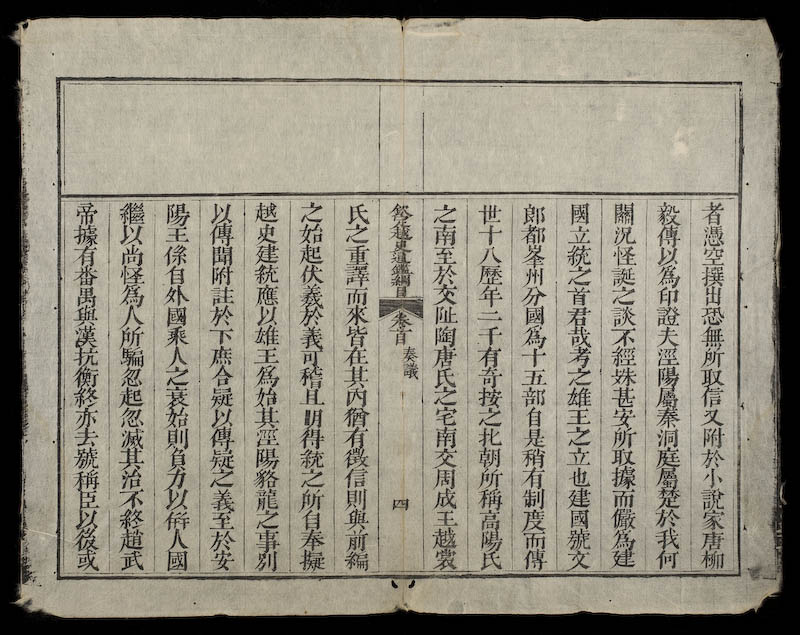 者憑空撰出恐無所取信又附於小說家唐柳
毅傳以爲印證夫涇陽屬秦洞庭屬楚於我何
關況怪誕之談不經殊甚安所取據而儼爲建
國立統之首君哉考之雄王之立也建國號文
郎都峯州分國爲十五部自是稍有制度而傳
世十八歷年二千有奇按之北朝所稱高陽氏
之南至於交阯陶唐氏之宅南交周成王越裳
欽定越史通鑑綱目 卷首 奏議 四
氏之重譯而來皆在其內猶有徵信則與前編
之始起伏羲於義可稽且明得統之所自奉擬
越史建統應以雄王爲始其涇陽貉龍之事別
以傳聞附註於下庶合疑以傳疑之義至於安
陽王係自外國乘人之衰始則負力以倂人國
繼以尚怪爲人所騙忽起忽滅其治不終趙武
帝據有番禺與漢抗衡終亦去號稱臣以後或